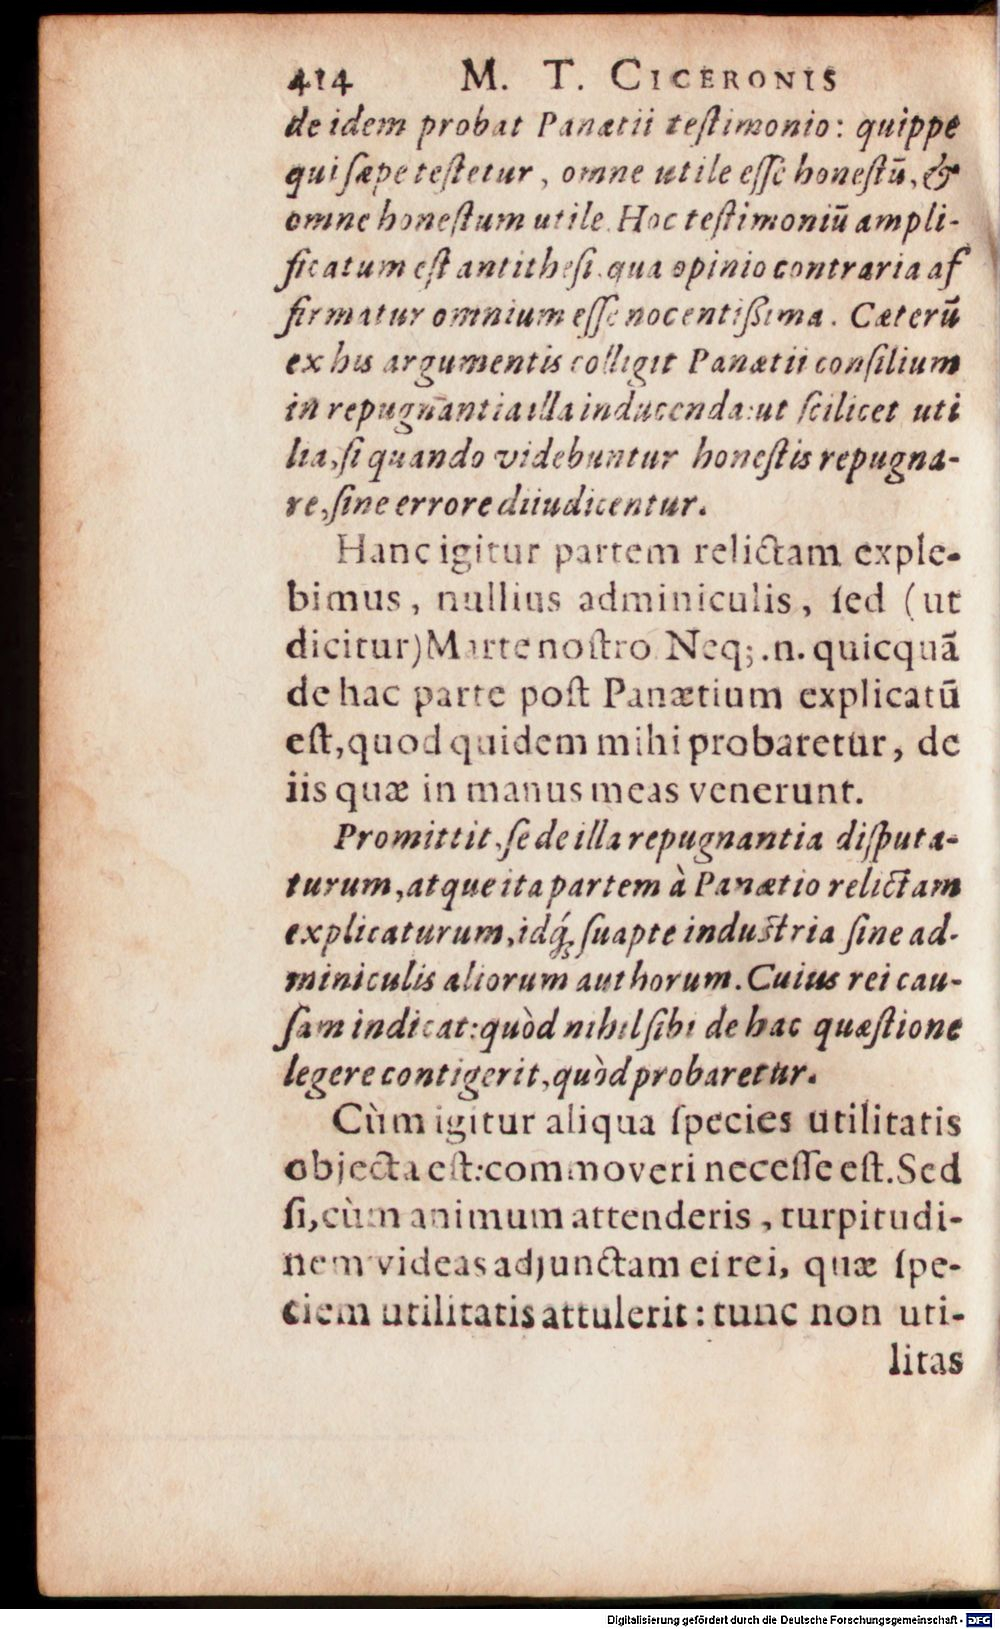 414 M. T. CICERONIS
de idem probat Panætii teſtimonio: quippe
qui ſæpe teſtetur, omne utile eſſe honeſtū, &
omne honeſtum utile. Hoc teſtimoniū ampli-
ficatum eſt antitheſi, qua opinio contraria af
firmatur omnium eſſe nocentißima. Cæterū
ex his argumentis colligit Panætii conſilium
in repugnantia illa inducenda: ut ſcilicet uti
lia, ſi quando videbuntur honeſtis repugna-
re, ſine errore diiudicentur.
Hanc igitur partem relictam exple-
bimus, nullius adminiculis, ſed (ut
dicitur) Marte noſtro. Neq;.n. quicquā
de hac parte poſt Panætium explicatū
eſt, quod quidem mihi probaretur, de
iis quæ in manus meas venerunt.
Promittit, ſe de illa repugnantia diſputa-
turum, atque ita partem à Panætio relictam
explicaturum, idq́; ſuapte induſtria ſine ad-
miniculis aliorum authorum. Cuius rei cau-
ſam indicat: quòd nihil ſibi de hac quæſtione
legere contigerit, quòd probaretur.
Cùm igitur aliqua ſpecies utilitatis
objecta eſt: commoveri neceſſe eſt. Sed
ſi, cùm animum attenderis, turpitudi-
nem videas adjunctam ei rei, quæ ſpe-
ciem utilitatis attulerit: tunc non uti-
litas
Digitalisierung gefördert durch die Deutsche Forschungsgemeinschaft - DFG